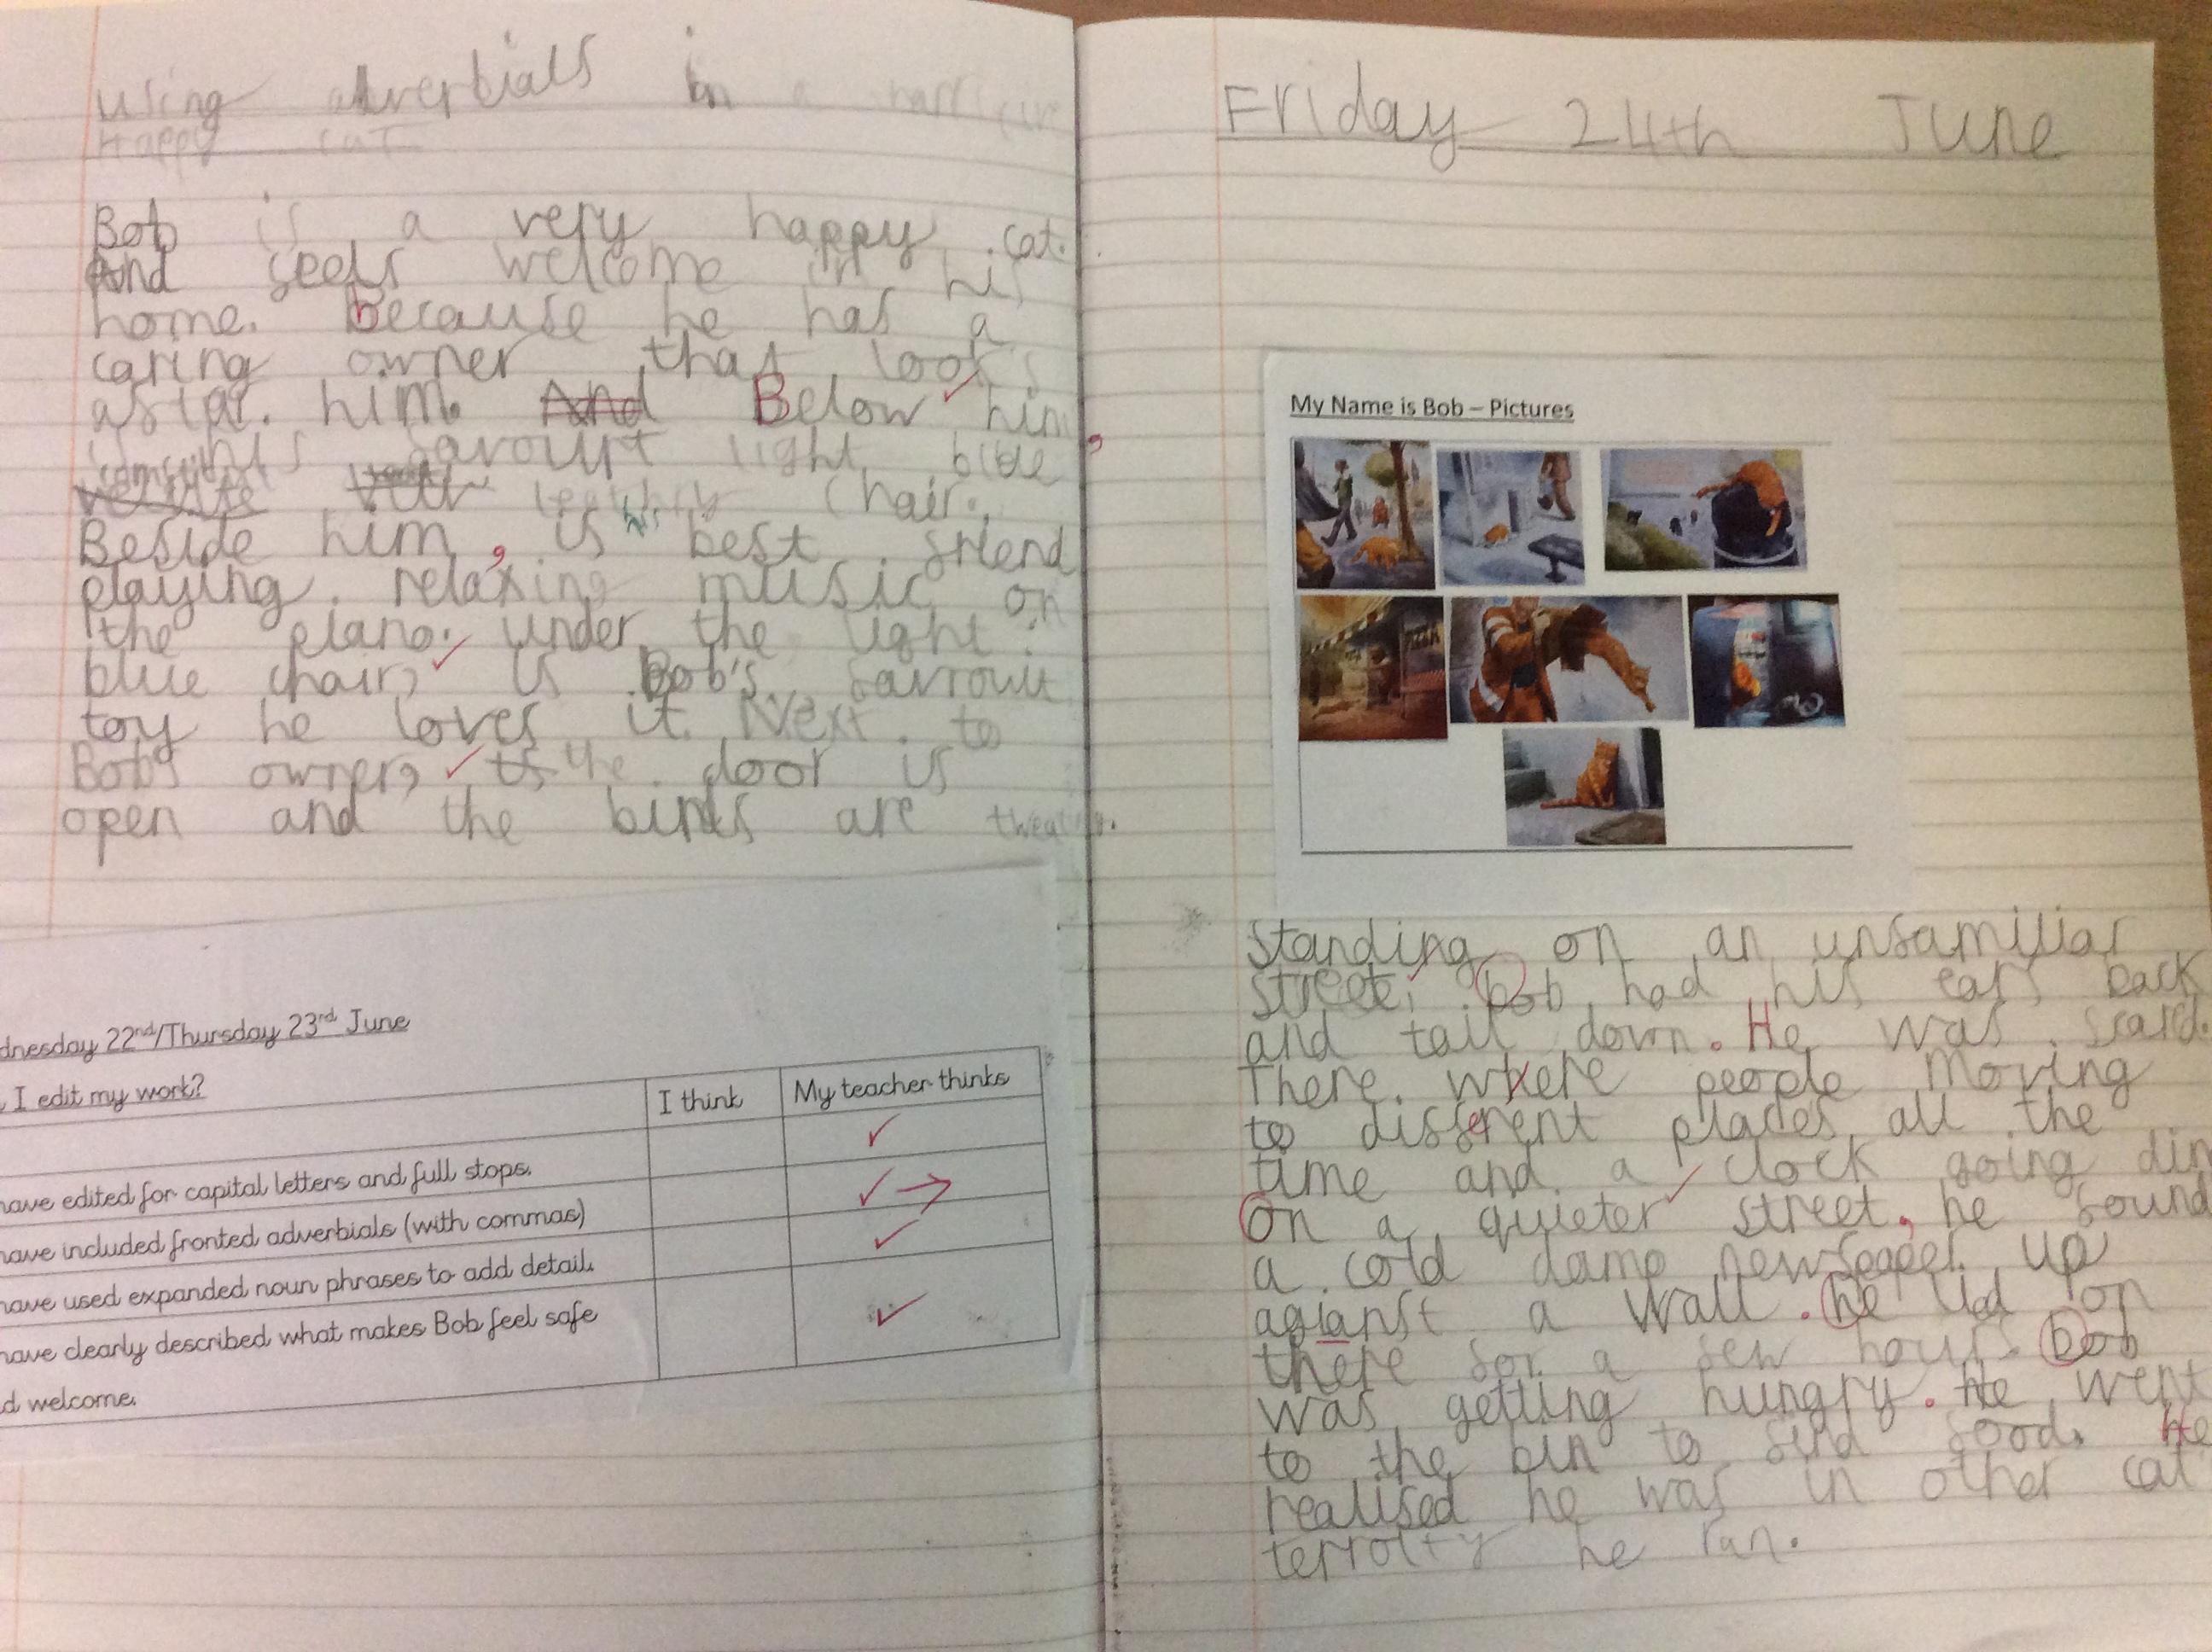 using adverbials in a
Happy cat
Bob is a very happy cat.
And feels welcome in his
home. because he has a
caring owner that looks
aftar. him. And Below him,
is his favourt light blue
comfiest
leathery chair.
Beside him, is his best friend
playing relaxing music on
the piano. under the light
blue chair, is Bob's favrouit
toy he loves it. Next to
Bob's owner, is the door is
open and the birds are
dnesday 22nd/Thursday 23rd June
I edit my work?
I think
My teacher thinks
have edited for capital letters and full stops.
have included fronted adverbials (with commas)
have used expanded noun phrases to add detail.
have clearly described what makes Bob feel safe
d welcome.
Friday 24th June
My Name is Bob – Pictures
Standing on an unfamiliar
street, bob had his ears back
and tail down. He was scared.
There where people moving
to different places all the
time and a clock going din
On a quieter street, he found
a cold damp newspaper up
agianst a wall. he lied on
there for a few hours. bob
was getting hungry. He went
to the bin to find food. He
realised he was in other cat
terrolty he ran.